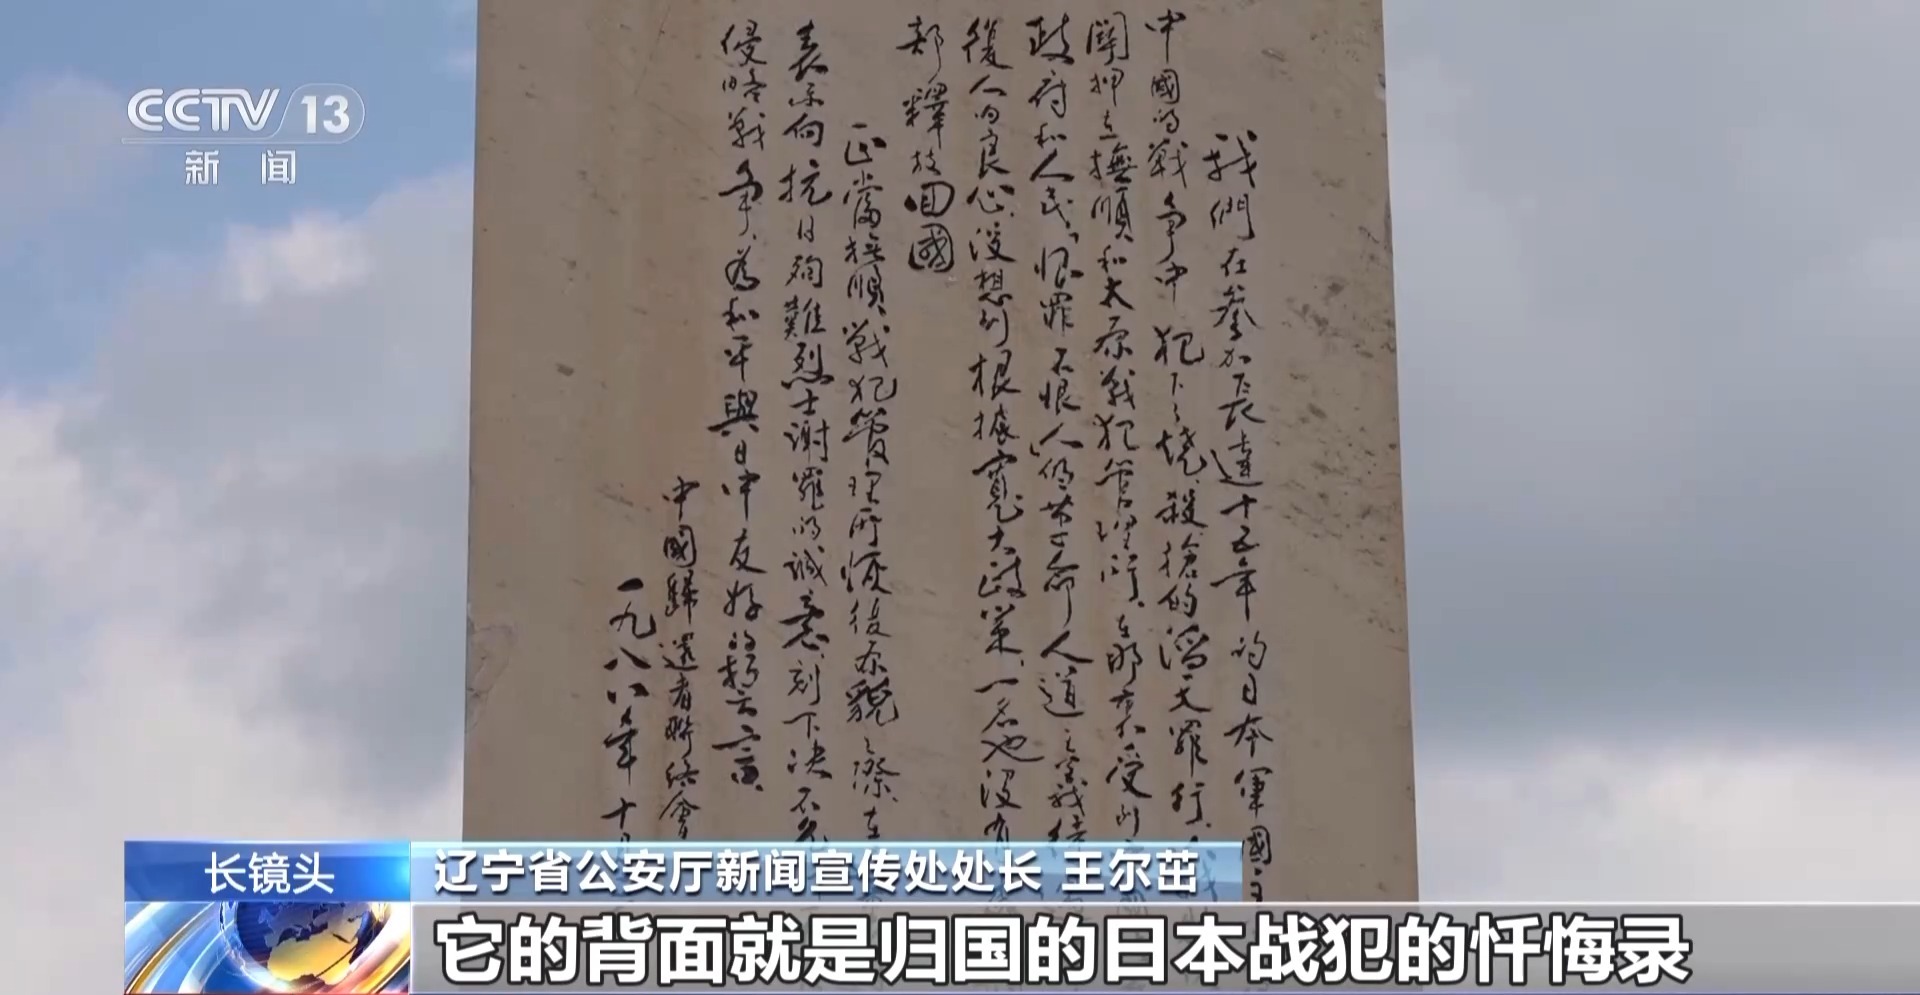 CCTV 13
新闻
我們在參加長達十五年的日本軍國主
中國的戰争中犯下了燒、殺、搶的滔天罪行,
關押在撫順和太原戰犯管理所,在那裏受
政府和人民"恨罪不恨人"的革命人道主義
復人的良心,没想到根據寬大政策,一名也没有
部釋放回國
正當撫順戰犯管理所恢復原貌之際,在
表示向抗日殉難烈士謝罪的誠意,刻下决不
侵略戰争、為和平與日中友好的誓言。
中國歸還者聯絡會
一九八八年十月
长镜头
辽宁省公安厅新闻宣传处处长 王尔茁
它的背面就是归国的日本战犯的忏悔录